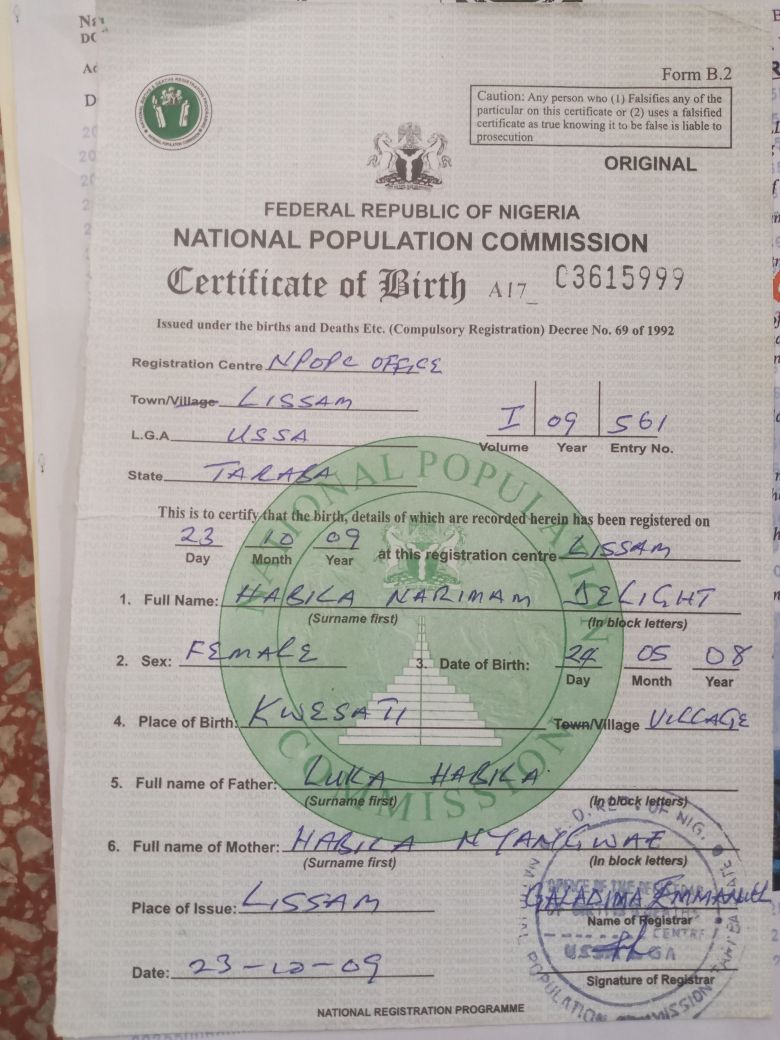 Form B.2
Caution: Any person who (1) Falsifies any of the
particular on this certificate or (2) uses a falsified
certificate as true knowing it to be false is liable to
prosecution
ORIGINAL
FEDERAL REPUBLIC OF NIGERIA
NATIONAL POPULATION COMMISSION
Certificate of Birth A17_ C3615999
Issued under the births and Deaths Etc. (Compulsory Registration) Decree No. 69 of 1992
Registration Centre NPOPC OFFICE
Town/Village LISSAM
I 09 561
L.G.A USSA
Volume Year Entry No.
State TARABA
NATIONAL POPULATION COMMISSION
This is to certify that the birth, details of which are recorded herein has been registered on
23 10 09 at this registration centre LISSAM
Day Month Year
1. Full Name: HABILA NARIMAM DELIGHT
(Surname first) (In block letters)
2. Sex: FEMALE 3. Date of Birth: 24 05 08
Day Month Year
4. Place of Birth: KWESATI Town/Village VILLAGE
5. Full name of Father: LUKA HABILA
(Surname first) (In block letters)
6. Full name of Mother: HABILA NYANGWAE
(Surname first) (In block letters)
Place of Issue: LISSAM GALADIMA EMMANUEL
Name of Registrar
Date: 23-10-09
Signature of Registrar
NATIONAL REGISTRATION PROGRAMME